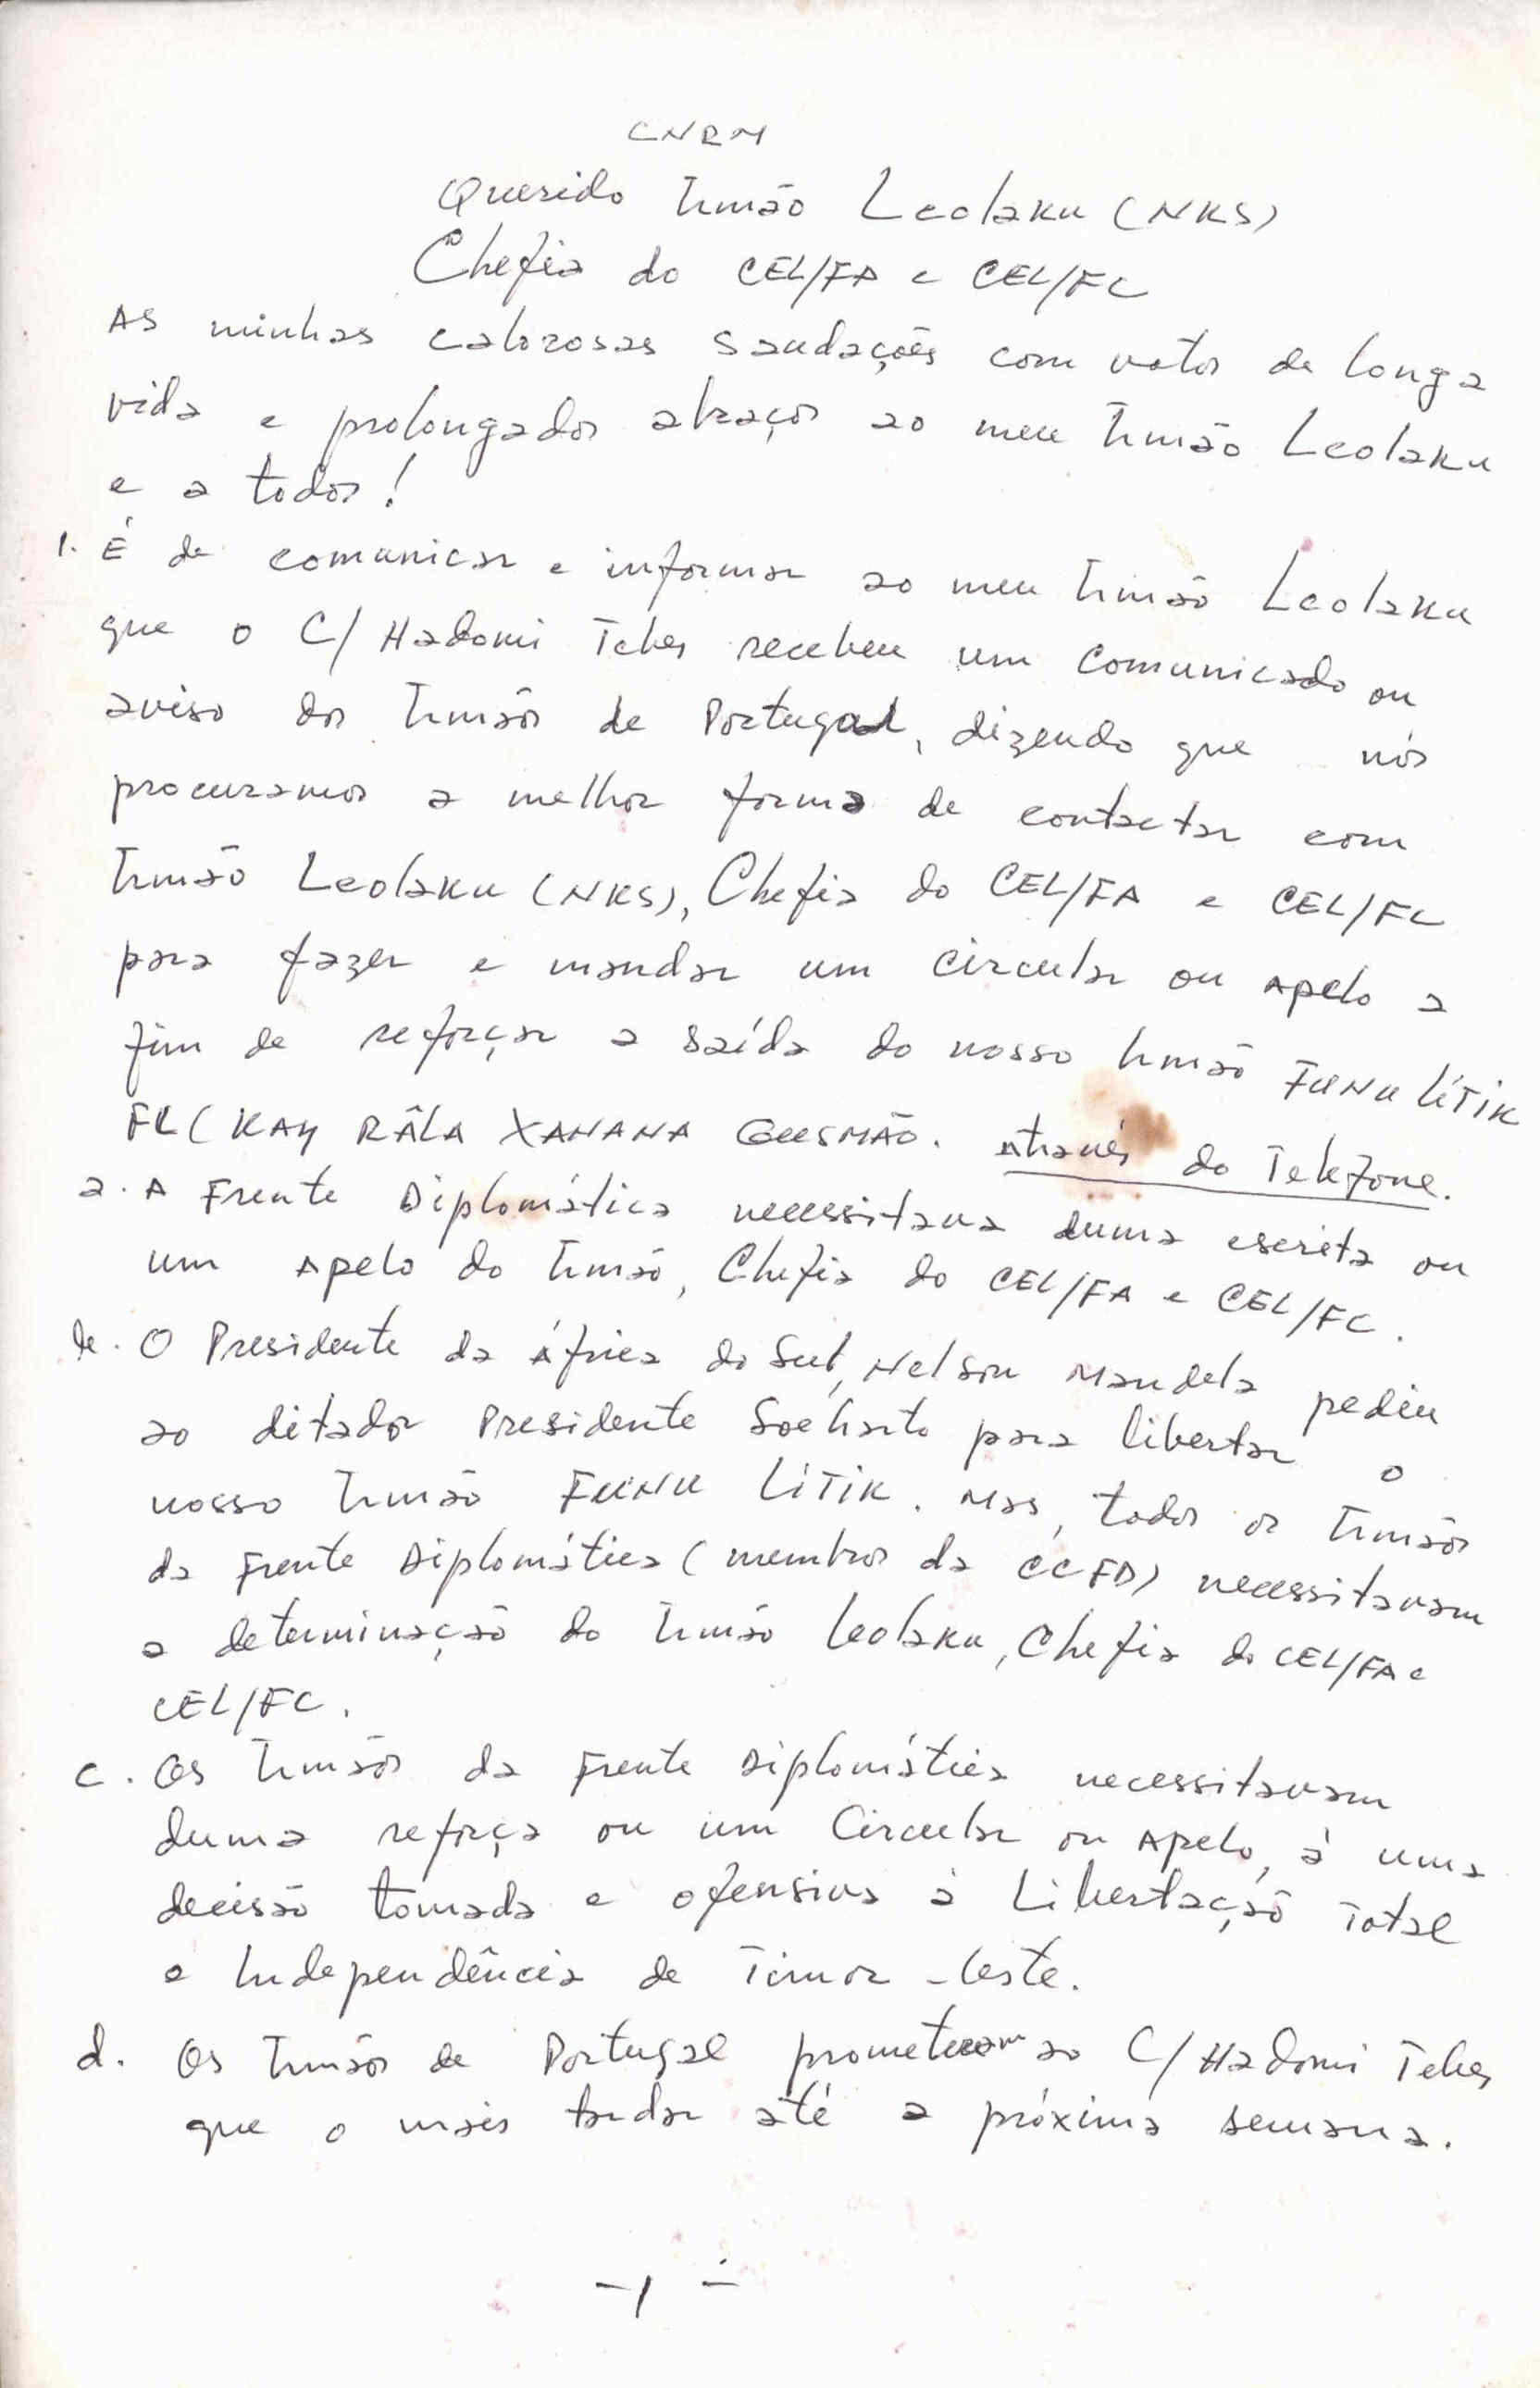 CNRM
Querido Irmão Leolaku (NKS)
Chefia do CEL/FA e CEL/FC
As minhas calorosas saudações com votos de longa
vida e prolongados abraços ao meu Irmão Leolaku
e a todos!
1. É de comunicar e informar ao meu Irmão Leolaku
que o C/ Hadomi Tebes recebeu um comunicado ou
aviso dos Irmãos de Portugal, dizendo que nós
procuramos a melhor forma de contactar com
Irmão Leolaku (NKS), Chefia do CEL/FA e CEL/FC
para fazer e mandar um circular ou apelo a
fim de reforçar a saída do nosso Irmão FUNU LÍTIK
FL (KAY RÂLA XANANA GUSMÃO. Através do Telefone.
a. A Frente Diplomática necessitava duma escrita ou
um Apelo do Irmão, Chefia do CEL/FA e CEL/FC.
b. O Presidente da África do Sul, Nelson Mandela pediu
ao ditador Presidente Soeharto para libertar o
nosso Irmão FUNU LÍTIK. Mas, todos os Irmãos
da Frente Diplomática (membros da CCFD) necessitavam
a determinação do Irmão Leolaku, Chefia do CEL/FA e
CEL/FC.
c. Os Irmãos da Frente Diplomática necessitavam
duma reforça ou um Circular ou Apelo, à uma
decisão tomada e ofensiva à Libertação Total
e Independência de Timor-Leste.
d. Os Irmãos de Portugal prometeram ao C/ Hadomi Tebes
que o mais tardar até a próxima semana.
- 1 -